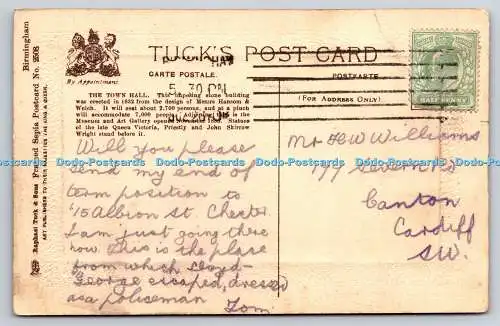 Birmingham
TUCK'S POST CARD
By Appointment
CARTE POSTALE.
POSTKARTE
(FOR ADDRESS ONLY)
5.30 PM
HALFPENNY
THE TOWN HALL. This imposing stone building
was erected in 1832 from the design of Messrs Hansom &
Welch. It will seat about 2,700 persons, and at a pinch
will accommodate 7,000 people. Adjoining is the
Museum and Art Gallery opened in Statues
of the late Queen Victoria, Priestly and John Skirrow
Wright stand before it.
Raphael Tuck & Sons Framed Sepia Postcard No. 2508
ART PUBLISHERS TO THEIR MAJESTIES THE KING & QUEEN.
Will you please
send my end of
term position to
"15 Albion St. Chester
I am just going there
now. This is the place
from which Lloyd-
George escaped, dressed
as a policeman
Tom.
Mr W Williams
177 Severn Rd
Canton
Cardiff
S.W.
Dodo-Postcards Dodo-Postcards Dodo-Postcards Dodo-Postcards Dodo-Postcards Dodo-Postcards